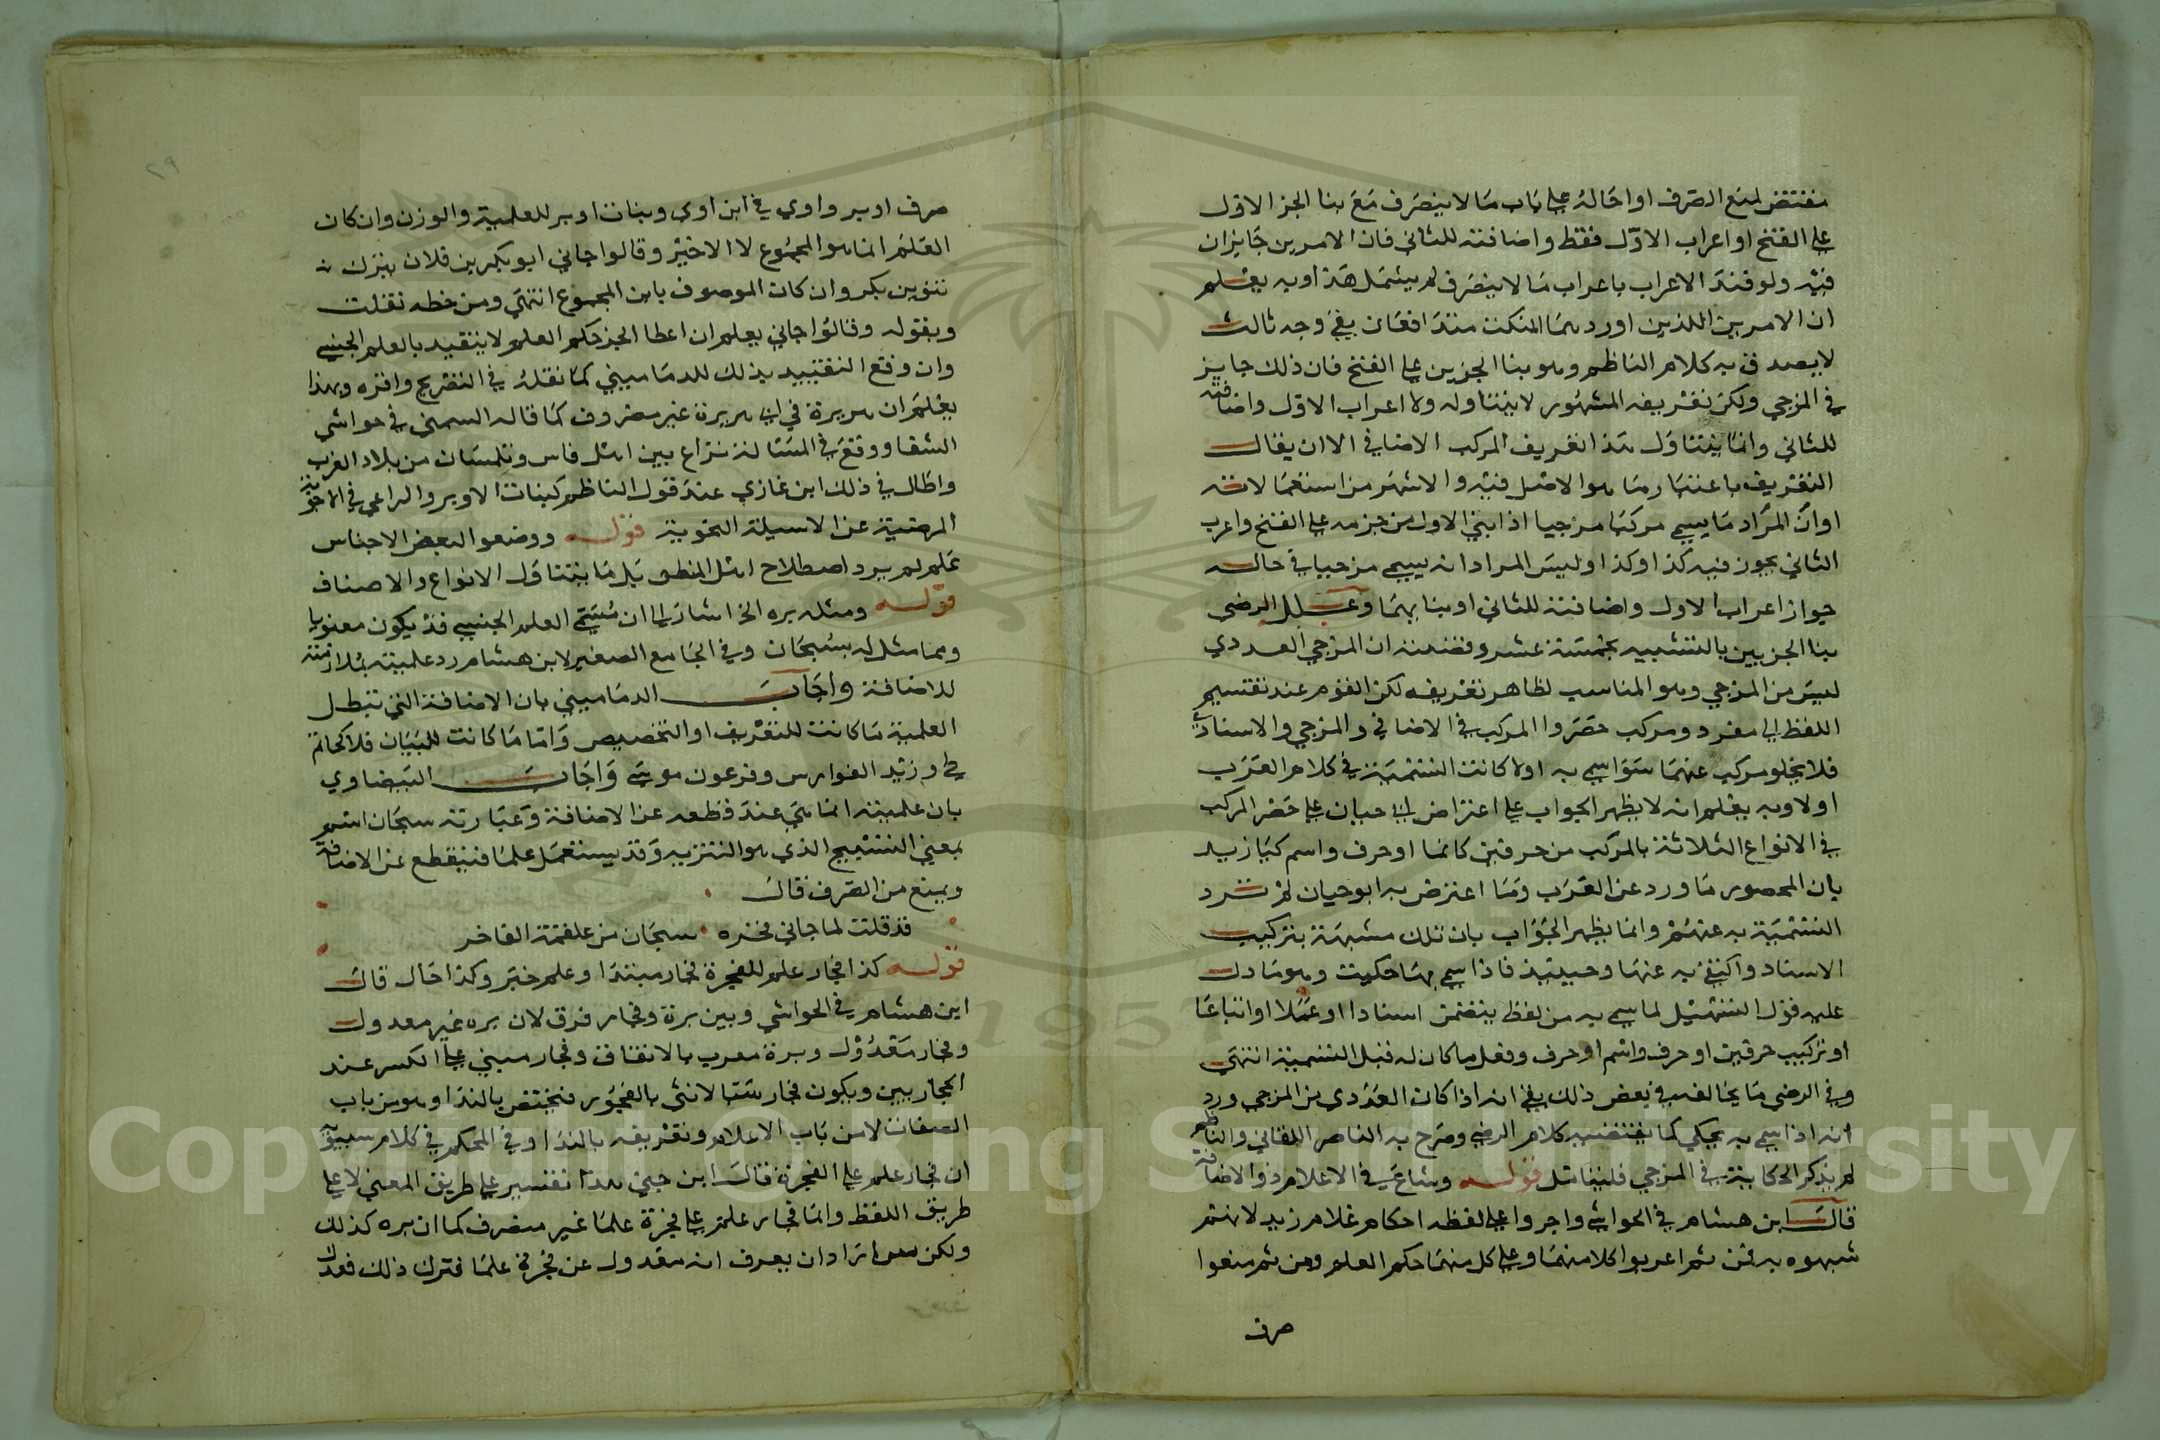 مقتض لمنع الصرف او احاله على باب ما لا ينصرف مع بنا الجز الاول
على الفتح او اعراب الاول فقط واضافته للثاني فان الامرين جايزان
فيه ولو قيد الاعراب باعراب ما لا ينصرف لم يشمل هذا وبه يعلم
ان الامرين اللذين اوردهما المنكت متدافعان بقي وجه ثالث
لا يصدق به كلام الناظم وهو بنا الجزين على الفتح فان ذلك جايز
في المزجي ولكن تعريفه المشهور لا يتناوله ولا اعراب الاول واضافته
للثاني وانما يتناول هذا تعريف المركب الاضافي الا ان يقال
التعريف باعتبار ما هو الاصل فيه والاشهر من استعمالاته
او ان المراد ما يسمى مركبا مزجيا اذا بني الاول من جزمه على الفتح واعرب
الثاني يجوز فيه كذا وكذا وليس المراد انه يسمى مزجيا في حالة
جواز اعراب الاول واضافته للثاني او بنايهما وعلل الرضى
بنا الجزيين بالتشبيه بخمسة عشر وقضيته ان المزجي العددي
ليس من المزجي وهو المناسب لظاهر تعريفه لكن القوم عند تقسيم
اللفظ الى مفرد ومركب حصروا المركب في الاضافي والمزجي والاسنادي
فلا يخلو مركب عنهما سوا سمي به او لا كانت التسمية في كلام العرب
او لا وبه يعلم انه لا يظهر الجواب على اعتراض ابي حيان على حصر المركب
في الانواع الثلاثة بالمركب من حرفين كانما او حرف واسم كيا زيد
بان المحصور ما ورد عن العرب وما اعترض به ابو حيان لم ترد
التسمية به عنهم وانما يظهر الجواب بان تلك مشبهة بتركيب
الاسناد واكتفي به عنها وحينيذ فاذا سمي بها حكيت وهو ما دل
عليه قول التسهيل لما سمي به من لفظ يتضمن اسنادا او عملا او اتباعا
او تركيب حرفين او حرف واسم او حرف وفعل ما كان له قبل التسمية انتهى
وفي الرضي ما يخالف في بعض ذلك بقي انه اذا كان العددي من المزجي ورد
انه اذا سمي به يحكي كما يقتضيه كلام الرضي وصرح به الناصر اللقاني والناظم
لم يذكر الحكاية في المزجي فليتامل قوله وشاع في الاعلام ذو الاضافة
قال ابن هشام في الحواشي واجروا على لفظه احكام غلام زيد لانهم
شبهوه به فمن ثم اعربوا كلا منهما وعلى كل منهما حكم العلم ومن ثم منعوا
صرف
٢٩
صرف اوبر واوي في ابن اوى وبنات اوبر للعلمية والوزن وان كان
العلم انما هو المجموع لا الاخير وقالوا جاني ابو بكر بن فلان بترك
تنوين بكر وان كان الموصوف بابن المجموع انتهى ومن خطه نقلت
وبقوله وقالوا جاني يعلم ان اعطا الجز حكم العلم لا يتقيد بالعلم الجنسي
وان وقع التقييد بذلك للدماميني كما نقله في التصريح واقره وبهذا
يعلم ان هريرة في ابي هريرة غير مصروف كما قاله السمني في حواشي
الشفا ووقع في المسالة نزاع بين اهل فاس وتلمسان من بلاد الغرب
واطال في ذلك ابن غازي عند قول الناظم كبنات الاوبر والراعي في الاجوبة
المرضية عن الاسيلة النحوية قوله ووضعوا لبعض الاجناس
علم لم يرد اصطلاح اهل المنطق بل ما يتناول الانواع والاصناف
قوله ومثله بره الخ اشار الى ان مسمى العلم الجنسي قد يكون معنويا
ومما مثل له بسبحان وفي الجامع الصغير لابن هشام رد علميته بملازمته
للاضافة واجاب الدماميني بان الاضافة التي تبطل
العلمية ما كانت للتعريف او التخصيص واما ما كانت للبيان فلا كحاتم
طي وزيد الفوارس وفرعون موسى واجاب البيضاوي
بان علميته انما هي عند قطعه عن الاضافة وعبارته سبحان اسم
بمعني التسبيح الذي هو التنزيه وقد يستعمل علما فينقطع عن الاضافة
ويمنع من الصرف قال
قد قلت لما جاني فخره سبحان من علقمة الفاخر
قوله كذا فجار علم للفجرة فجار مبتدا وعلم خبر وكذا حال قال
ابن هشام في الحواشي وبين برة وفجار فرق لان بره غير معدول
وفجار معدول وبرة معرب بالاتفاق وفجار مبني على الكسر عند
الحجازيين ويكون فجار سبا لانثى بالفجور فيختص بالندا وهو من باب
الصفات لا من باب الاعلام وتعريفه بالندا وفي المحكم في كلام سيبويه
ان فجار علم على الفجرة قال ابن جني هذا تفسير على طريق المعني لا على
طريق اللفظ وانما فجار علم على فجرة علما غير مصرف كما ان بره كذلك
ولكن س اراد ان يعرف انه معدول عن فجرة علما فترك ذلك فعدل